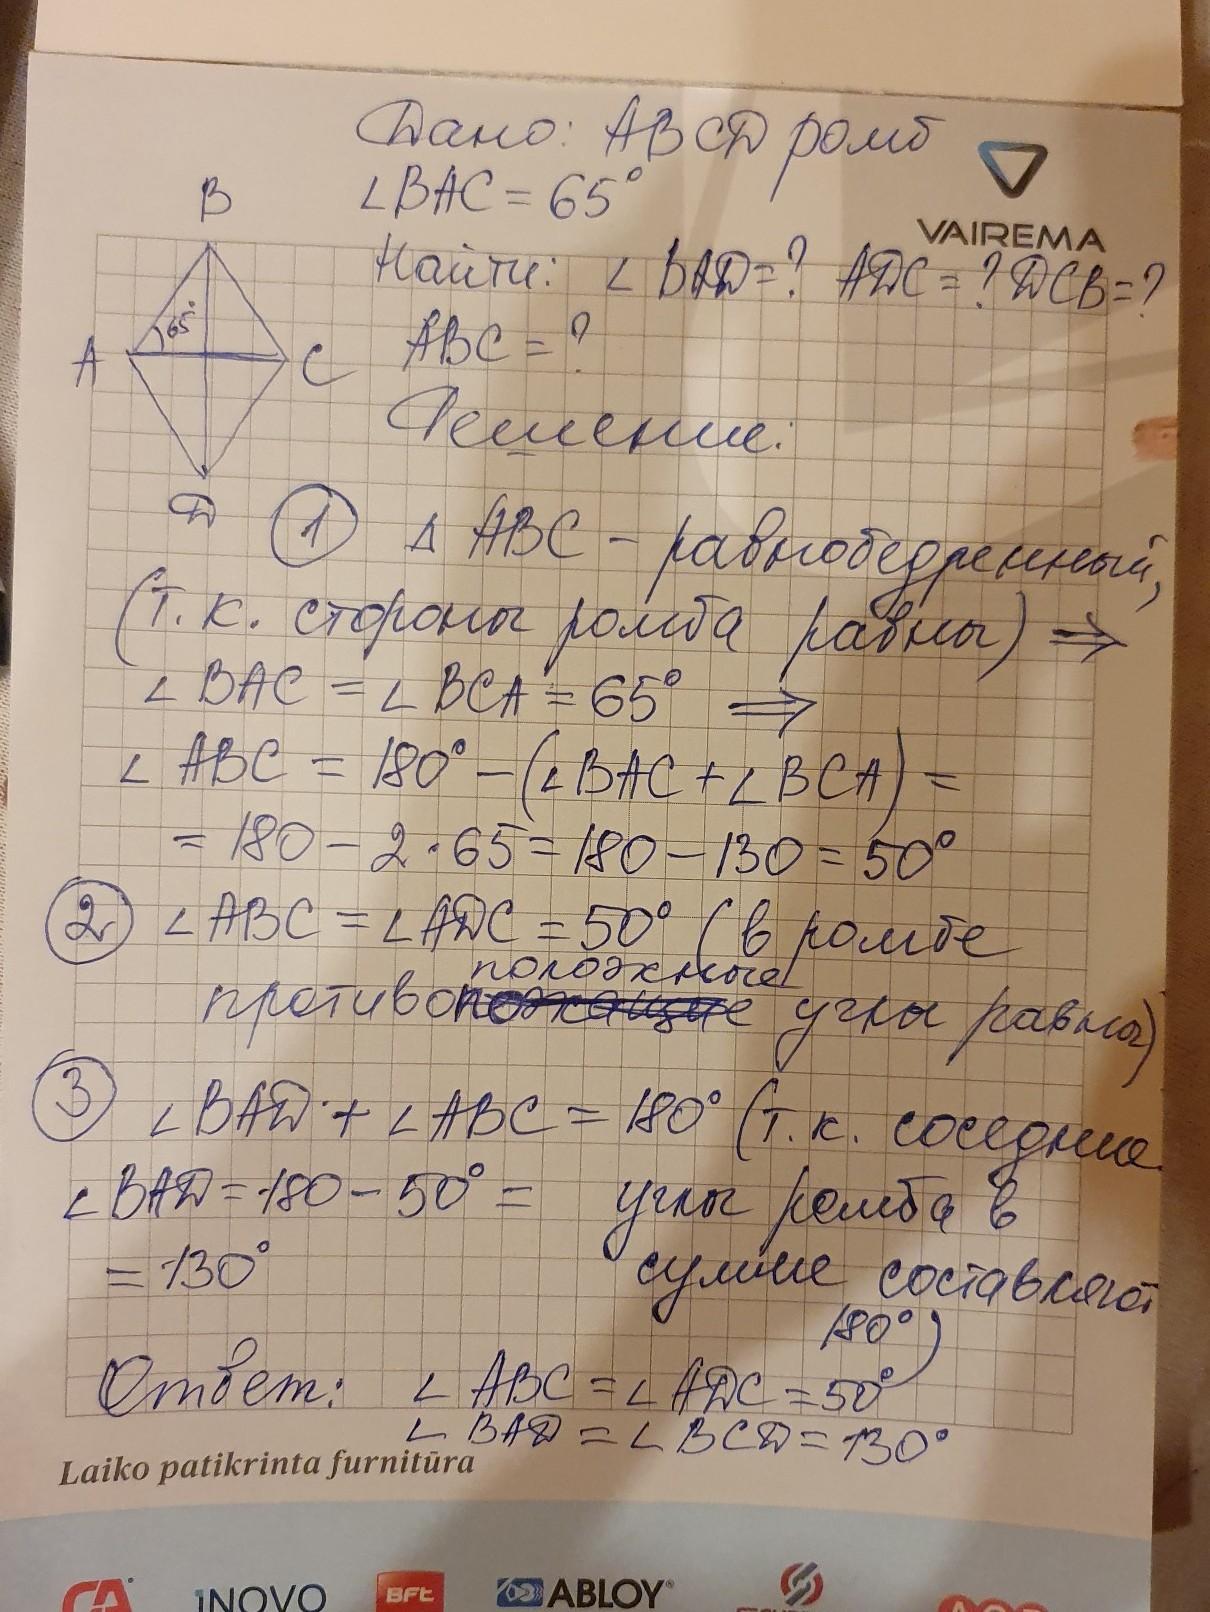 Дано: ABCD ромб
∠BAC = 65°
VAIREMA
Найти: ∠ BAD=? ADC=? DCB=?
ABC = ?
B
65°
A
C
D
Решение:
1 Δ ABC – равнобедренный,
(т.к. стороны ромба равны) ⇒
∠ BAC = ∠ BCA = 65° ⇒
∠ ABC = 180° – (∠BAC + ∠BCA) =
= 180 – 2·65 = 180 – 130 = 50°
2 ∠ ABC = ∠ADC = 50° (в ромбе
положные
противо углы равны)
3 ∠BAD + ∠ABC = 180° (т.к. соседние
∠BAD = 180 – 50° = углы ромба в
= 130° сумме составляют
180°)
Ответ: ∠ ABC = ∠ADC = 50°
∠ BAD = ∠ BCD = 130°
Laiko patikrinta furnitūra
iNOVO
BFT
ABLOY